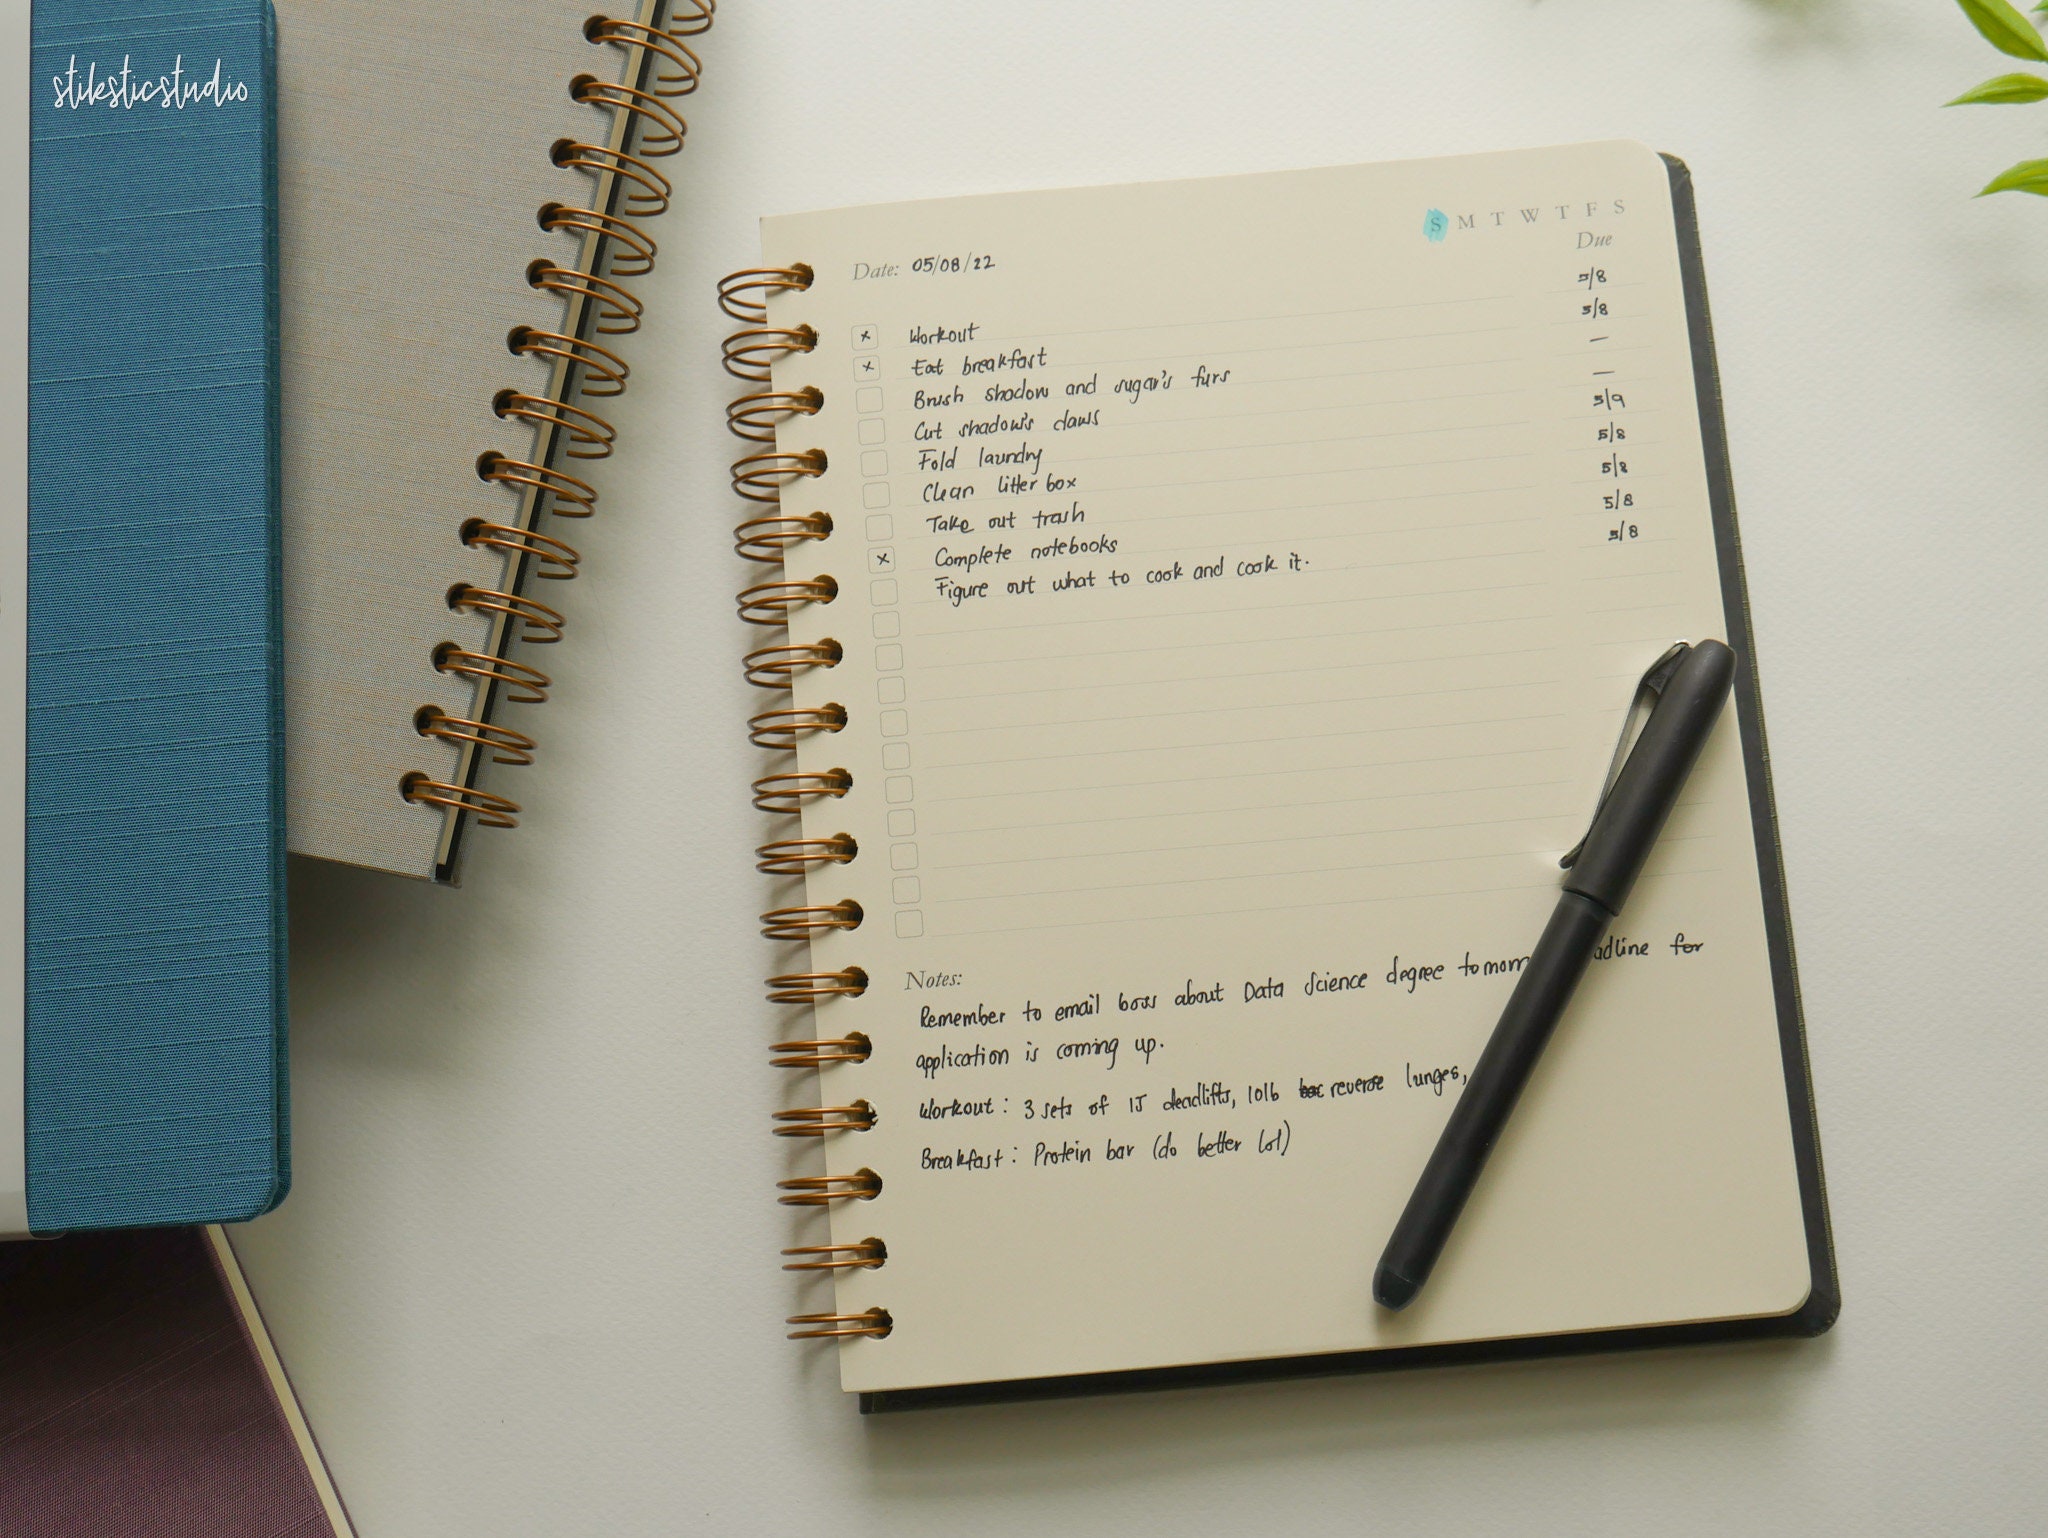 stiksticstudio
S M T W T F S
Due
Date: 05/08/22
x Workout 5/8
x Eat breakfast 5/8
Brush shadow and sugar's furs —
Cut shadow's claws —
Fold laundry 5/9
Clean litter box 5/8
Take out trash 5/8
x Complete notebooks 5/8
Figure out what to cook and cook it. 5/8
Notes:
Remember to email boss about Data Science degree for
application is coming up.
Workout: 3 sets of 15 deadlifts, 10lb reverse lunges,
Breakfast: Protein bar (do better lol)